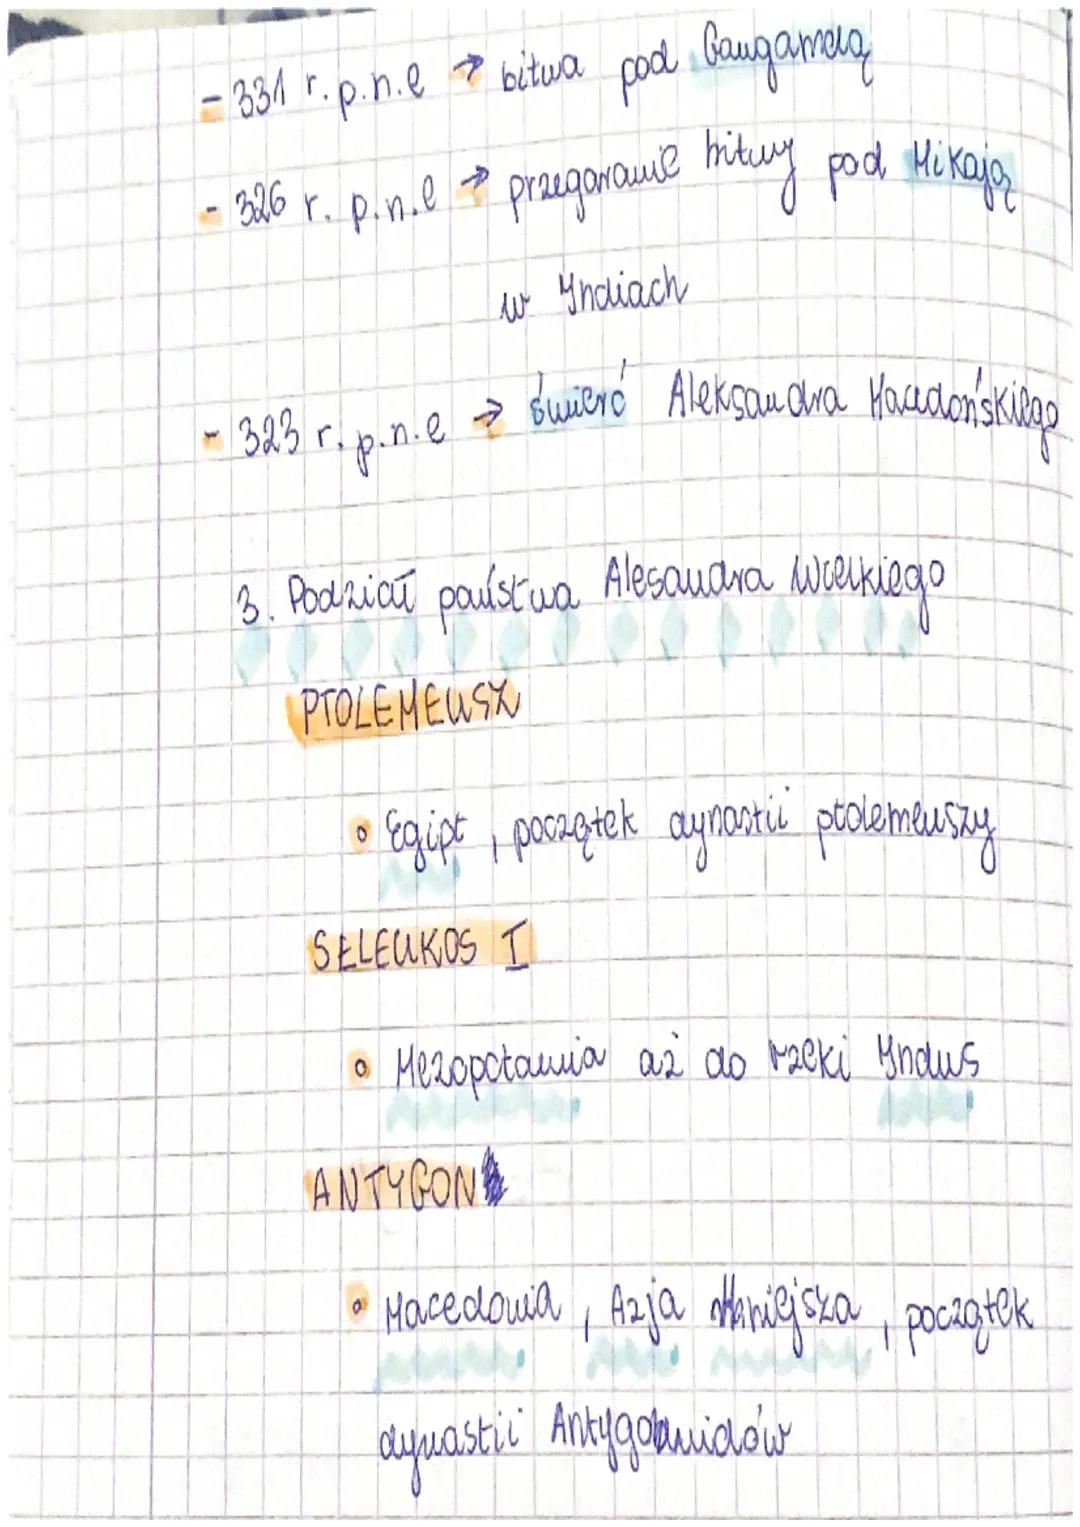 - 331 r. p.n.e → bitwa pod Gaugamelą
- 326 r. p.n.e → przegaranie bitwy pod Nikają
w Indiach
- 323 r. p.n.e → śmierć Aleksandra Macedońskiego
3. Podział państwa Alesandra Wielkiego
PTOLEMEUSZ
• Egipt, początek dynastii ptolemeuszy
SELEUKOS I
• Mezopotamia aż do rzeki Indus
ANTYGON
• Macedonia, Azja Mniejsza, początek
dynastii Antygonidów